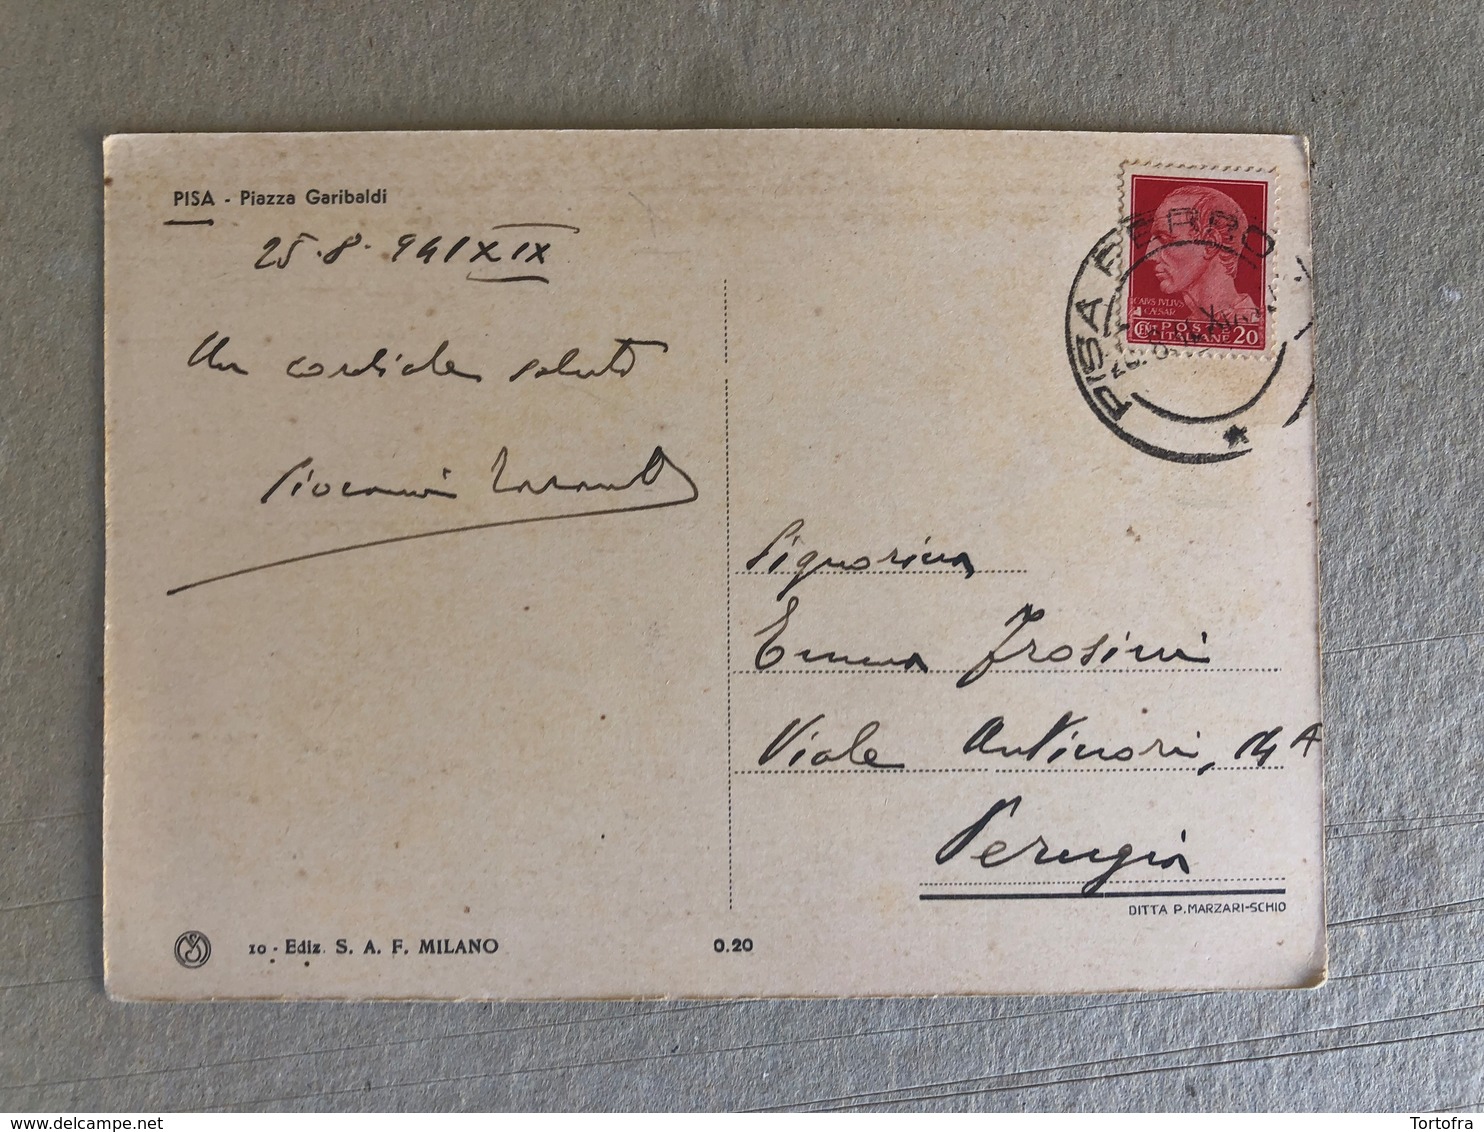 PISA - Piazza Garibaldi
25·8·941 XIX
Un cordiale saluto
Giovanni
PISA FERRO
CAIVS IVLIVS
CAESAR
CENT POSTE
ITALIANE 20
Signorina
Emma Frosini
Viale Antinori, 14 A
Perugia
DITTA P. MARZARI-SCHIO
10 - Ediz. S. A. F. MILANO
0.20
Tortofra